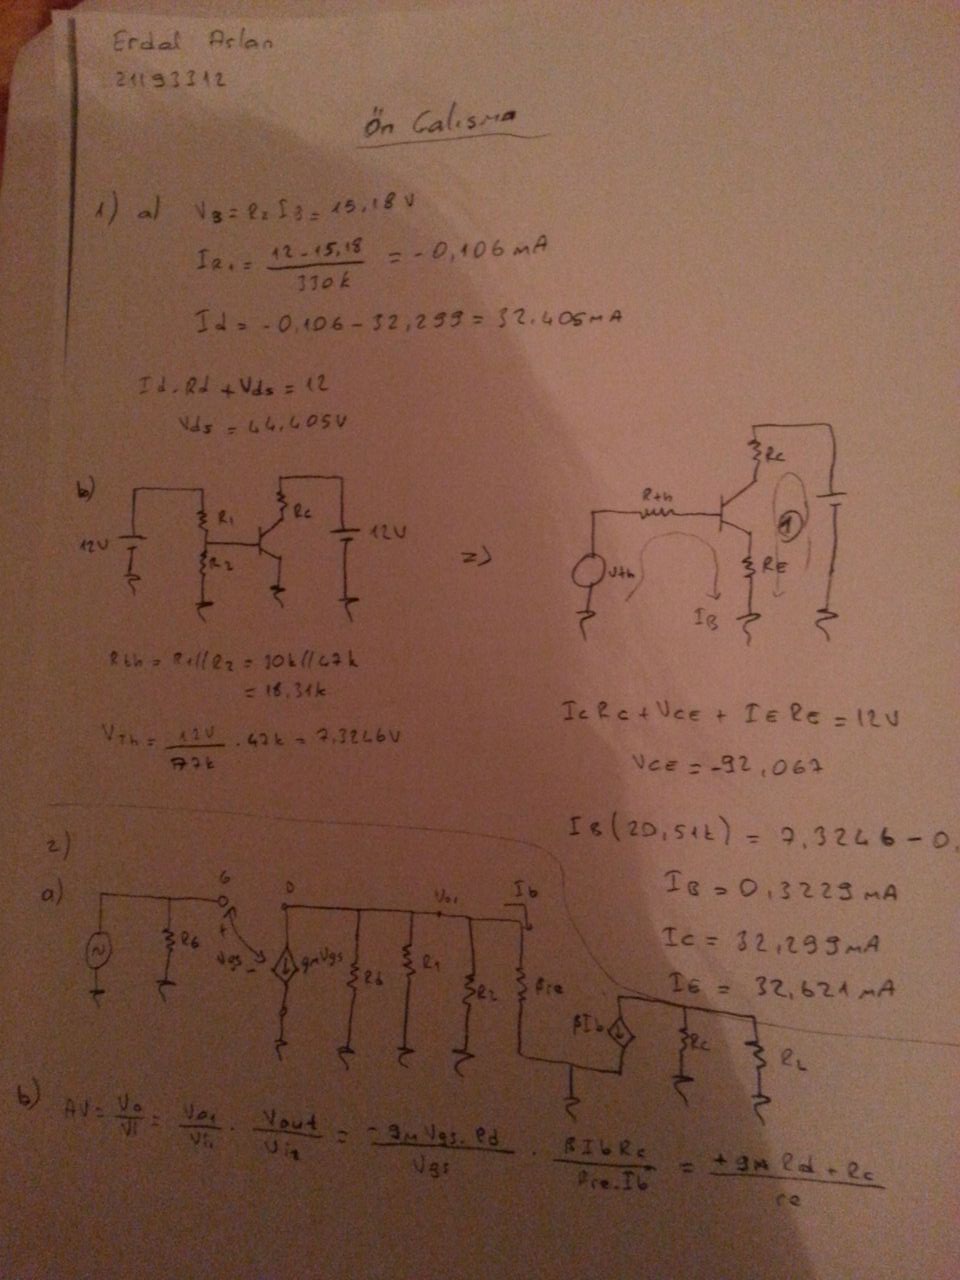 Erdal Arlan
21193312
Ön Calisma
1) a) VB = R2 IB = 15,18 V
IR1 = 12-15,18 / 330k = -0,106 mA
Id = -0,106 - 32,299 = 32.405mA
Id.Rd + Vds = 12
Vds = 44,405V
b)
12V R1 R2 Rc 12V
=>
Rth Vth IB Rc 1 RE
Rth = R1//R2 = 30k//47k
= 18.31k
VTh = 12V / 77k . 47k = 7,3246V
IcRc + VCE + IERE = 12V
VCE = -92,067
IB(20,51k) = 7,3246 - 0.
IB = 0,3229mA
Ic = 32,299mA
IE = 32,621 mA
2)
a)
RG G + Vgs - D gmVgs Rd R1 Vo1 R2 Ib βre βIb Rc RL
b) AV = Vo / Vi = Vo1 / Vi1 . Vout / Vi2 = -gmVgs.Rd / Vgs . βIbRc / βre.Ib = +gm Rd.Rc / re